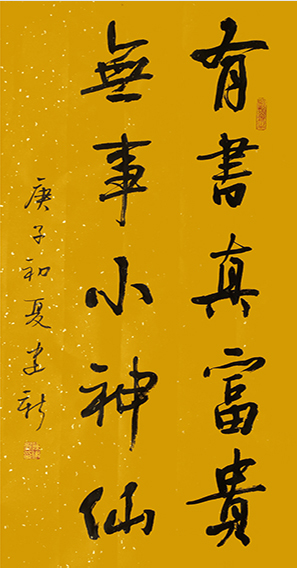 有書真富貴
無事小神仙
庚子初夏建新